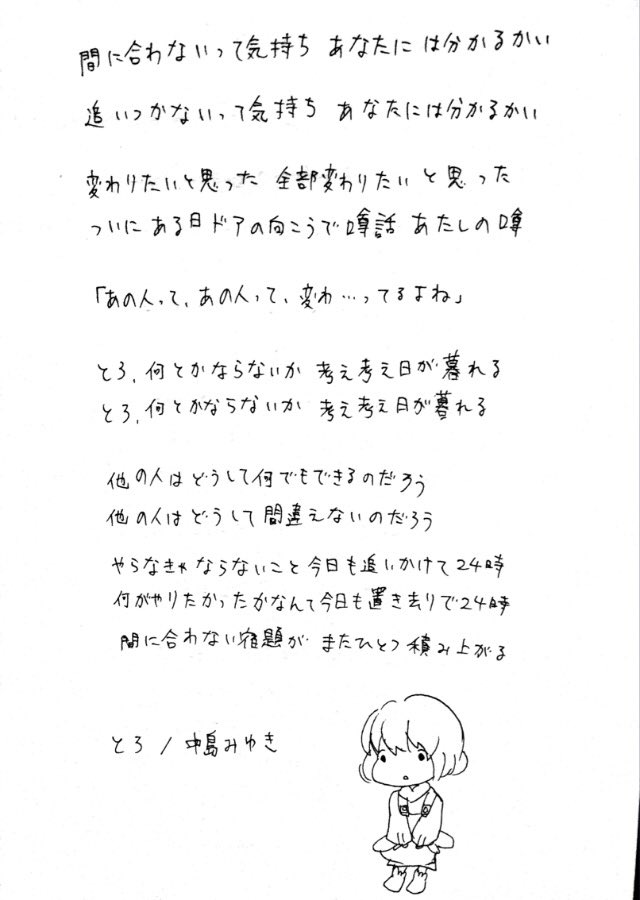 間に合わないって気持ち あなたには分かるかい
追いつかないって気持ち あなたには分かるかい
変わりたいと思った 全部変わりたいと思った
ついにある日ドアの向こうで噂話 あたしの噂
「あの人って、あの人って、変わ…ってるよね」
とろ、何とかならないか 考え考え日が暮れる
とろ、何とかならないか 考え考え日が暮れる
他の人はどうして何でもできるのだろう
他の人はどうして間違えないのだろう
やらなきゃならないこと今日も追いかけて24時
何がやりたかったかなんて今日も置き去りで24時
間に合わない宿題が またひとつ積み上がる
とろ / 中島みゆき